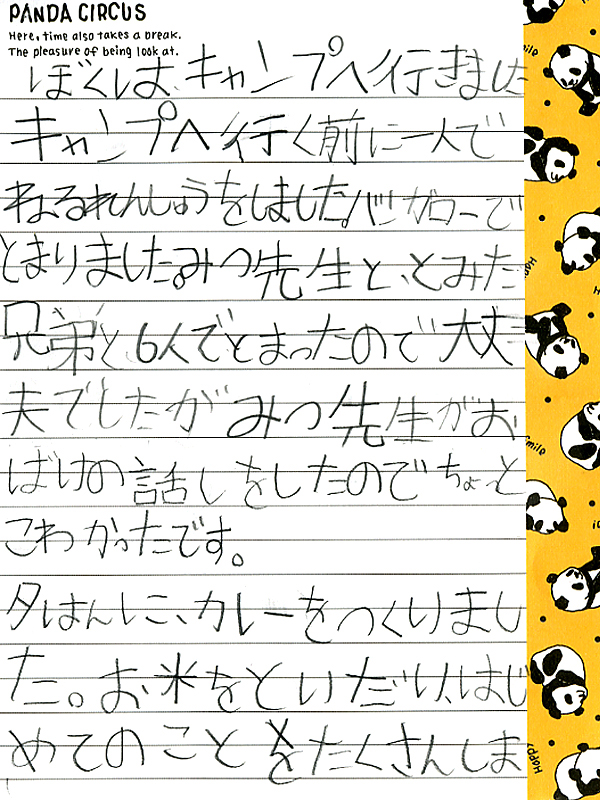 PANDA CIRCUS
Here, time also takes a break.
The pleasure of being look at.
ぼくは、キャンプへ行きました
キャンプへ行く前に一人で
ねるれんしゅうをしました。バンガローで
とまりました。みつ先生と、とみた
兄弟と6人でとまったので大丈
夫でしたがみつ先生がお
ばけの話しをしたのでちょっと
こわかったです。
夕はんに、カレーをつくりまし
た。お米をといだり、はじ
めてのことをたくさんしま
smile
Happy
Smile
Happy